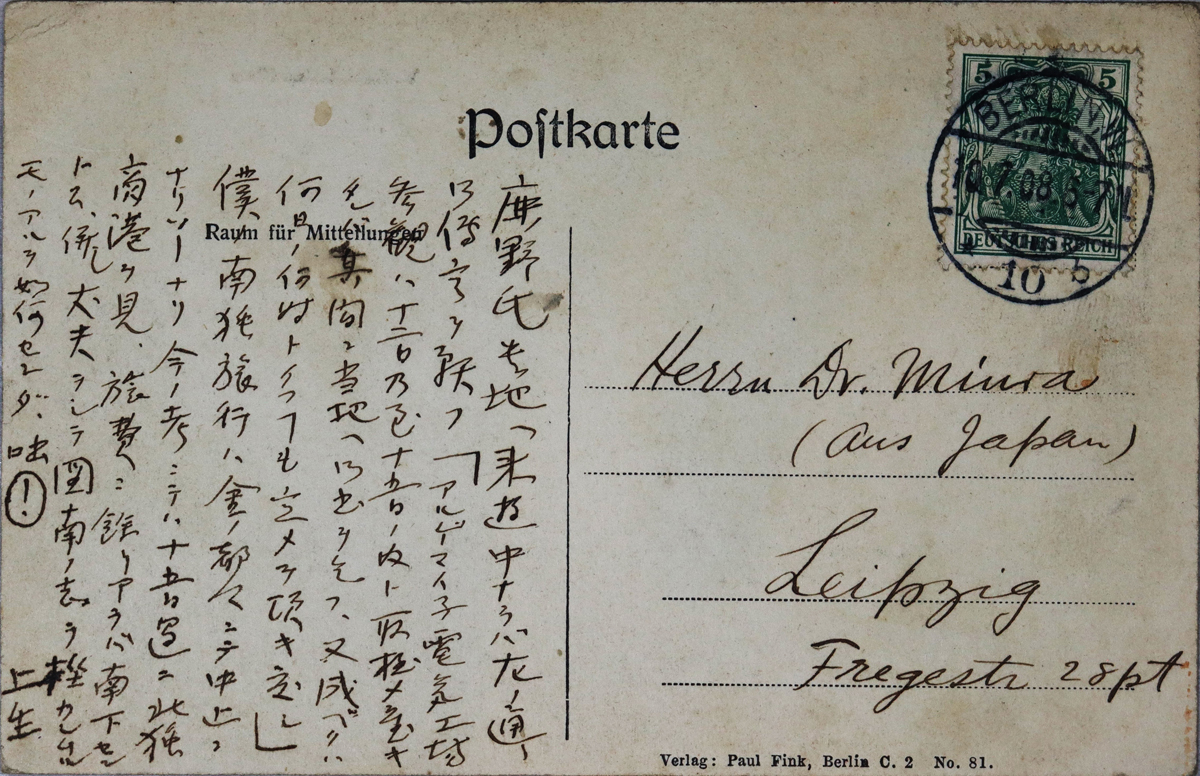 Postkarte
Raum für Mitteilungen
5 5
BERLIN.W.
10.7.08.6-7N
DEUTSCHES REICH
* 10 b
鹿野氏貴地ヘ来遊中ナラバ左ノ通リ
御傳言ヲ願フ「アルゲマイネ電気工場
参観ハ十二日乃至十五日ノ内ト取極メ置キ
タレバ其間ニ当地ヘ御出ヲ乞フ、又成ベクハ
何日ノ何時トイフコトモ定メテ頂キ度シ」
僕、南独旅行ハ金ノ都合ニテ中止ニ
ナリソーナリ今ノ考ニテハ十五日過ニ北独
商港ヲ見、旅費ニ餘リアラバ南下セン
トス、併シ大夫ニシテ図南ノ志ヲ
モノアルヲ如何センダ、咄(!)
上生
Herrn Dr. Miura
(aus Japan)
Leipzig
Fregestr 28pt
Verlag: Paul Fink, Berlin C. 2 No. 81.